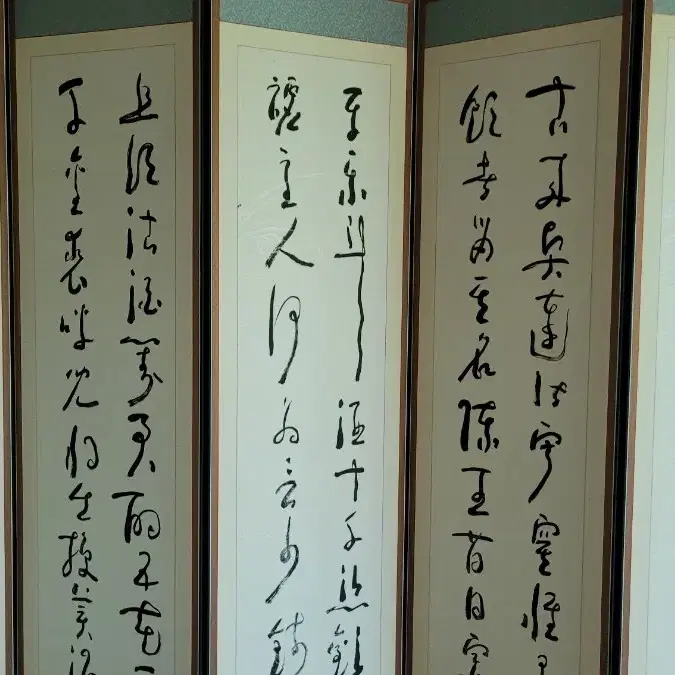 古來賢達皆寂寞惟
飲者留其名陳王昔日宴
平樂斗酒十千恣歡
謔主人何為言少錢
且須沽酒對君酌五花
千金裘呼兒將出換美酒